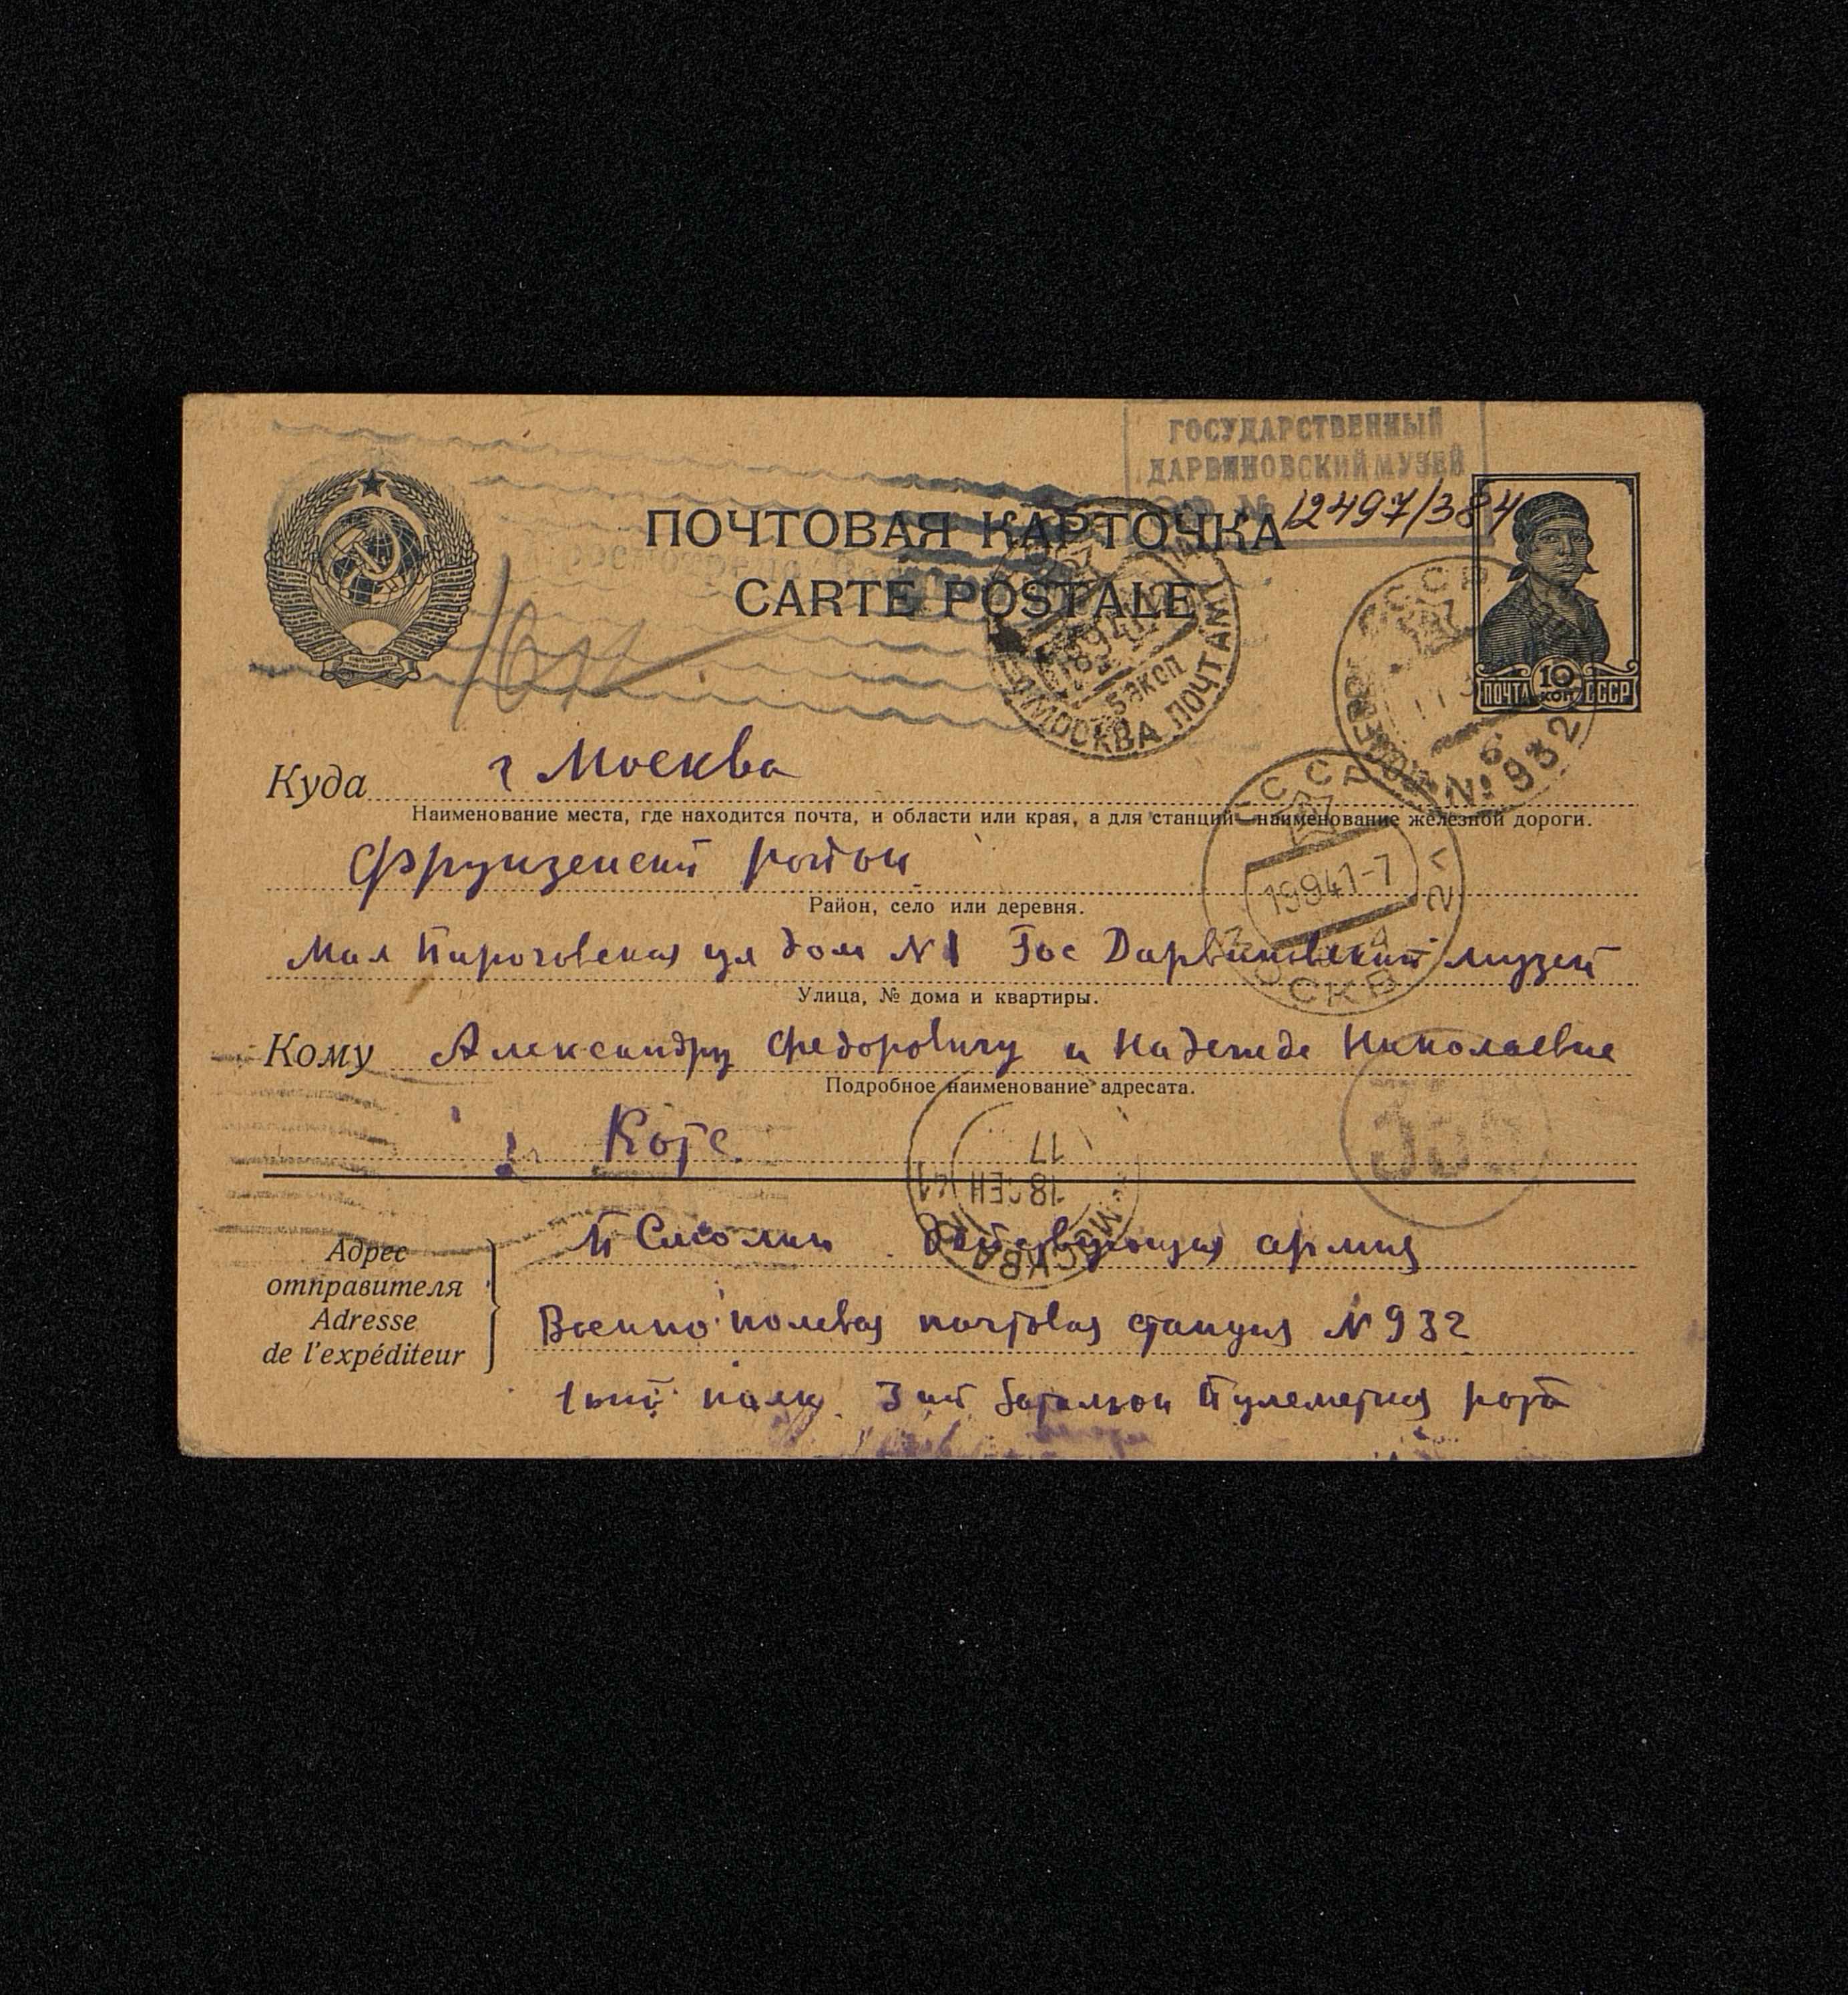 ГОСУДАРСТВЕННЫЙ
ДАРВИНОВСКИЙ МУЗЕЙ
12497/384
ПОЧТОВАЯ КАРТОЧКА
CARTE POSTALE
ПОЧТА 10 КОП СССР
СССР
№ 932
18941
5 эксп
МОСКВА ПОЧТАМТ
Куда г Москва
Наименование места, где находится почта, и области или края, а для станций наименование железной дороги.
Фрунзенский район
Район, село или деревня.
СССР
19941-7
МОСКВА
Мал Пироговская ул дом N1 Гос Дарвиновский музей
Улица, № дома и квартиры.
Кому Александру Федоровичу и Надежде Николаевне
Подробное наименование адресата.
Котс.
17
18 СЕН 41
МОСКВА
Адрес
отправителя
Adresse
de l'expéditeur
П Смолин Действующая армия
Военно полевая почтовая станция N 932
1ый полк 3ий батальон Пулеметная рота